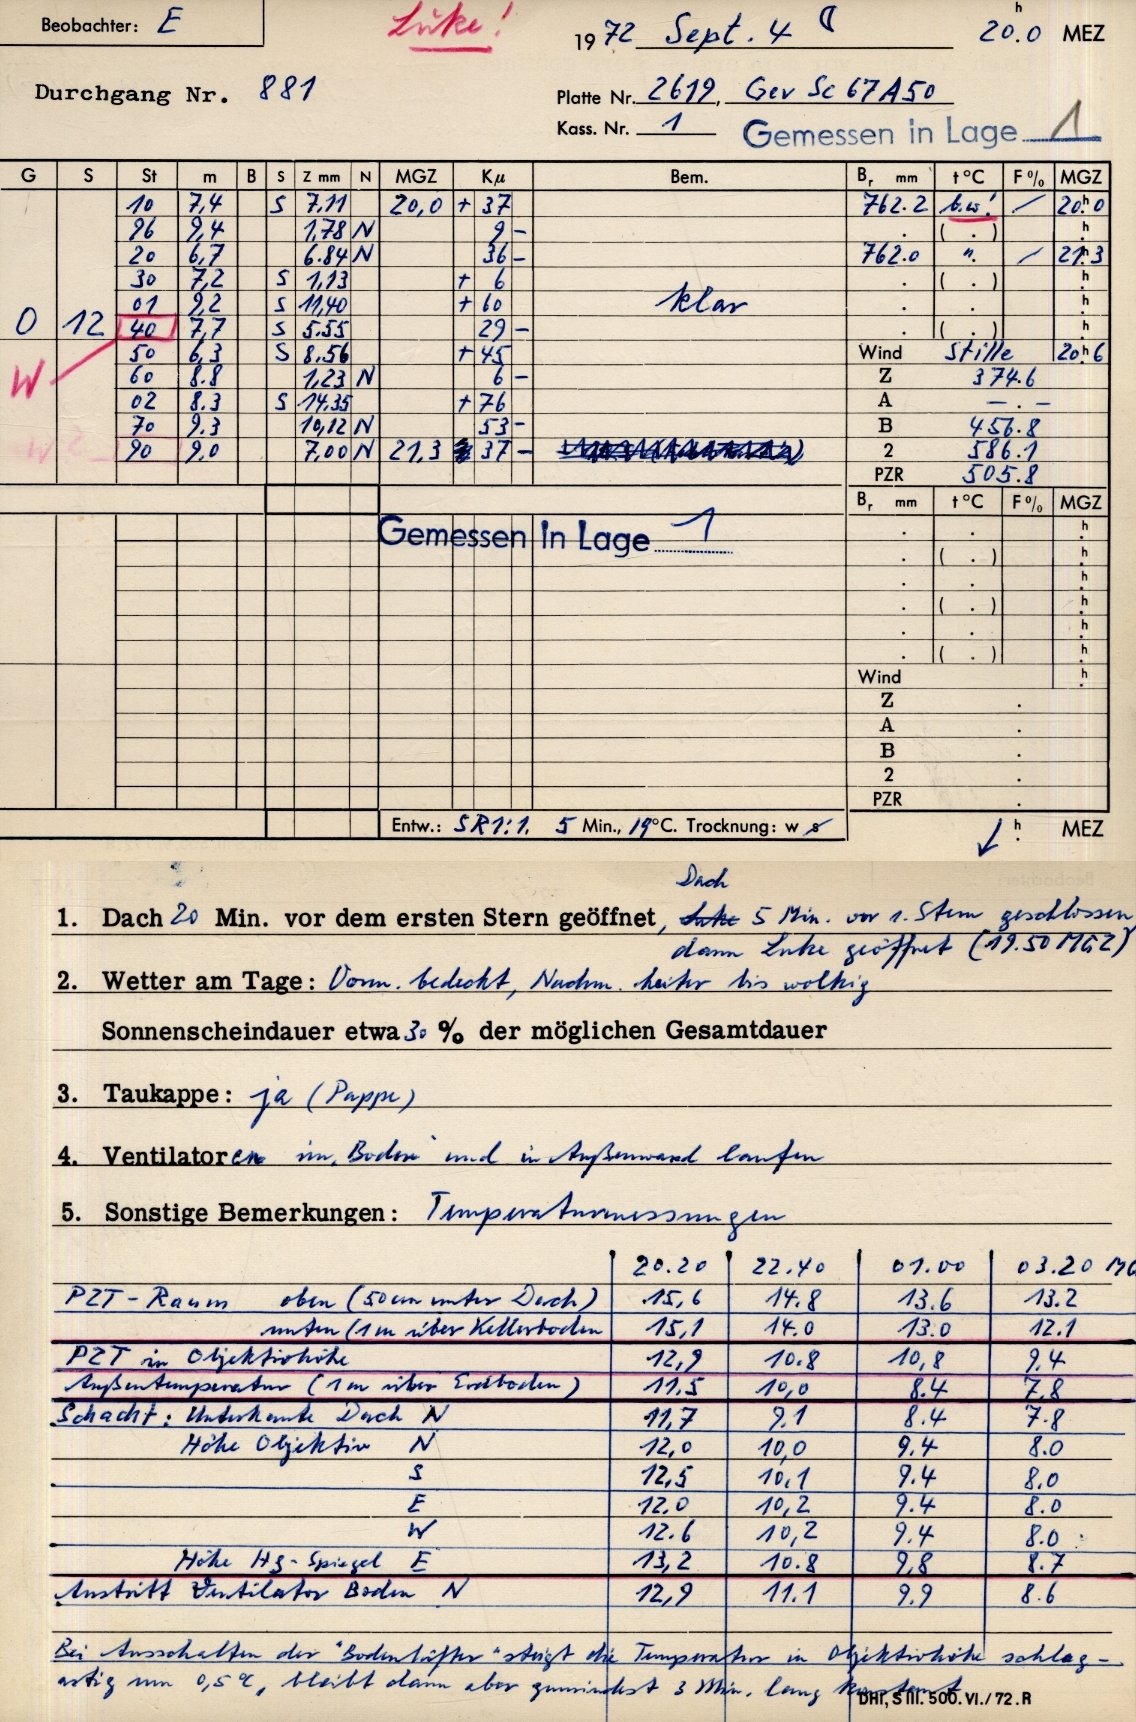 Beobachter: E
Luke!
1972 Sept. 4 20.0 h MEZ
Durchgang Nr. 881
Platte Nr. 2619, Gev Sc 67A50
Kass. Nr. 1
Gemessen in Lage 1
G S St m B S Z mm N MGZ Kµ Bem. Br mm t °C F % MGZ
10 7,4 S 7,11 20,0 + 37 762.2 b.w! / 20h0
96 9,4 1,78 N 9 – . ( . ) h
20 6,7 6.84 N 36 – 762.0 ". / 21h3
30 7,2 S 1,13 + 6 . ( . ) h
01 9,2 S 11,40 + 60 klar . . h
O 12 40 7,7 S 5.55 29 – . ( . ) h
50 6,3 S 8.56 + 45 Wind Stille 20h6
W 60 8.8 1,23 N 6 – Z 374.6
02 8.3 S 14.35 + 76 A – . –
70 9.3 10,12 N 53 – B 456.8
W 90 9,0 7,00 N 21,3 37 – 2 586.1
PZR 505.8
Br mm t °C F % MGZ
Gemessen in Lage 1
. . h
. ( . ) h
. . h
. ( . ) h
. . h
. ( . ) h
Wind h
Z .
A .
B .
2 .
PZR .
Entw.: SR1:1. 5 Min., 19°C. Trocknung: w s h MEZ
Dach
1. Dach 20 Min. vor dem ersten Stern geöffnet, Luke 5 Min. vor 1. Stern geschlossen
dann Luke geöffnet (19.50 MGZ)
2. Wetter am Tage: Vorm. bedeckt, Nachm. heiter bis wolkig
Sonnenscheindauer etwa 30 % der möglichen Gesamtdauer
3. Taukappe: ja (Pappe)
4. Ventilatoren im "Boden" und in Außenwand laufen
5. Sonstige Bemerkungen: Temperaturmessungen
20.20 22.40 01.00 03.20 MG
PZT-Raum oben (50cm unter Dach) 15,6 14.8 13.6 13.2
unten (1m über Kellerboden 15,1 14.0 13.0 12.1
PZT in Objektivhöhe 12,9 10.8 10,8 9.4
Außentemperatur (1m über Erdboden) 11.5 10,0 8.4 7,8
Schacht: Unterkante Dach N 11,7 9.1 8.4 7.8
Höhe Objektiv N 12,0 10,0 9.4 8.0
S 12,5 10,1 9.4 8,0
E 12.0 10,2 9.4 8.0
W 12.6 10,2 9.4 8.0
Höhe Hg-Spiegel E 13,2 10.8 9,8 8.7
Austritt Ventilator Boden N 12,9 11.1 9.9 8.6
Bei Ausschalten der "Bodenlüfter" steigt die Temperatur in Objektivhöhe schlag-
artig um 0,5°C, bleibt dann aber zumindest 3 Min. lang konstant
DHI, S III. 500. VI./72. R